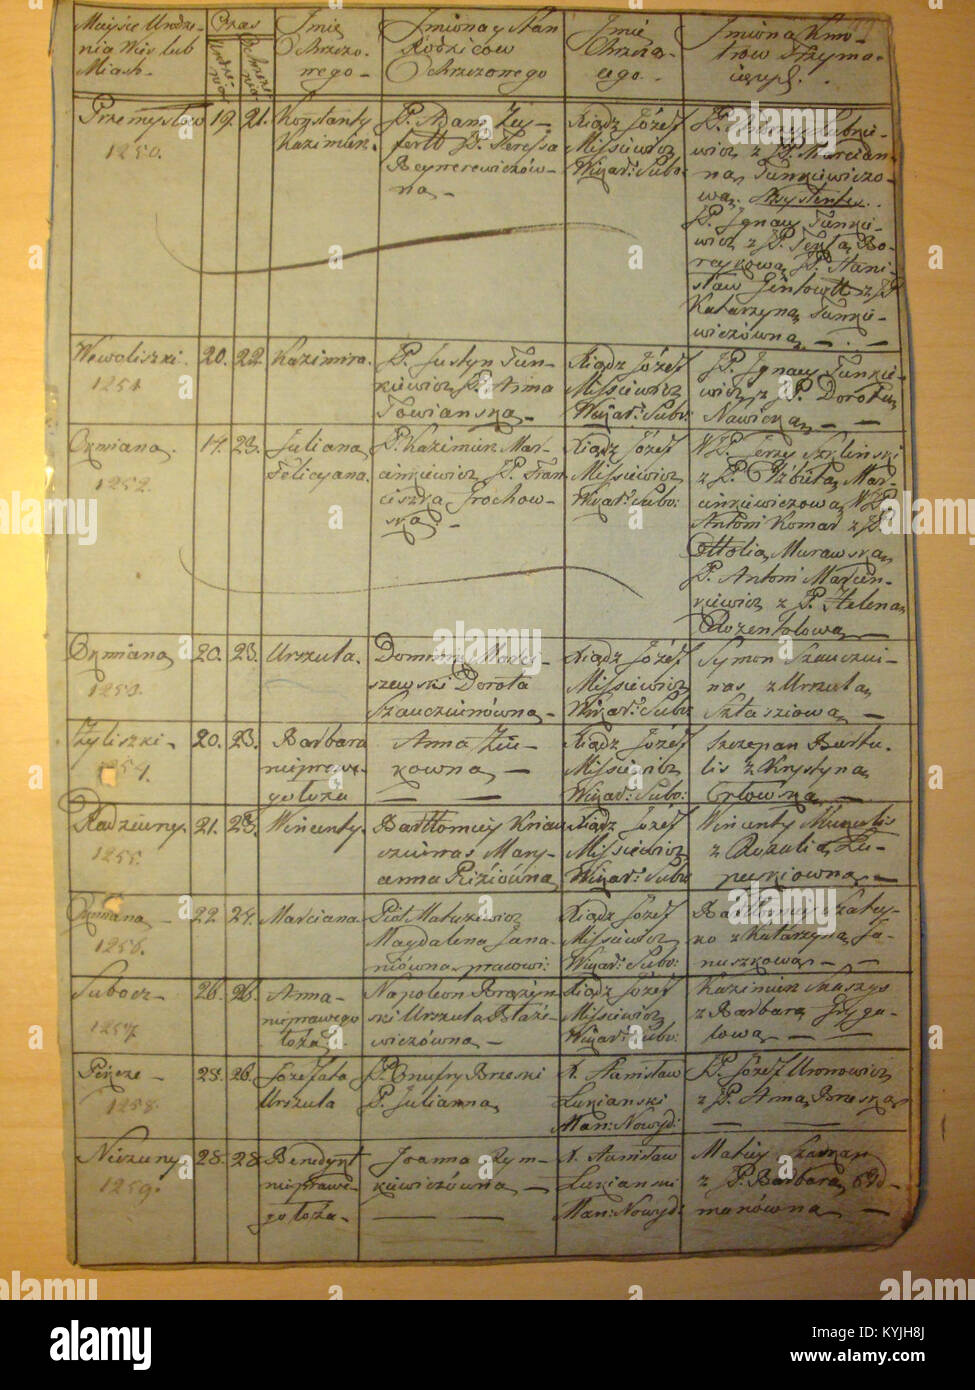 Miejsce Urodze-
nia Wieś lub
Miasto.
Czas
Urodzenia
Ochrzcze-
nia
Imie
Ochrzczo-
nego.
Imiona y Stan
Rodziców
Ochrzczonego
Imie
Chrzczą-
cego.
Imiona Kmo-
trow Trzyma-
iących.
Przemysław
1250.
19. 21.
Konstanty
Kazimierz.
P. Adam
P. Teressa
Ksiądz Józef
Missiewicz
Wikar: Subo:
wicz z P. Marcian-
na Junkiewiczo-
wa. Assystentes.
P. Ignacy Junkie-
wicz z P. Teklą Bo-
reykową P. Stani-
sław Gintowtt z P.
Katarzyna Junkie-
wiczówna —
Woweliszki.
1251
20. 22.
Kazimira.
P. Justyn Jun-
kiewicz P. Anna
Towianska —
Ksiądz Józef
Missiewicz
Wikar: Subo:
P. Ignacy Junkie-
wicz z P. Dorotą
Nawicka —
Oxmiana.
1252.
14. 23.
Juliana
Felicyana.
P. Kazimierz Mar-
cinkiewicz P. Fran-
ciszka Grochow-
ska —
Ksiądz Józef
Missiewicz
Wikar: Subo:
W P. Jerzy Szkliński
z P. Elżbieta Mar-
cinkiewiczowa W P.
Antoni Komar z P.
Ottolia Murawska
P. Antoni Marcin-
kiewicz z P. Helena
Rozentolowa —
Oxmiana
1253.
20. 23.
Urszula.
Dominik
szewski Dorota
Szauczunówna —
Ksiądz Józef
Missiewicz
Wikar: Subo:
Symon Szauczu-
nas z Urszula
—
Żyliszki -
1254.
20. 23.
Barbara
nieprawe-
go łoża
Anna Żu-
kowna —
Ksiądz Józef
Missiewicz
Wikar: Subo:
Szczepan Bartu-
lis z Krystyna
Orłowska —
Radziuny.
1255.
21. 23.
Wincenty.
Bartłomiey
Mary-
anna
Ksiądz Józef
Missiewicz
Wikar: Subo:
Wincenty
z Rozalia
—
Oxmiana
1256.
22. 24.
Marciana
Piotr Matusewicz
Magdalena Jana-
niówna pracowi:
Ksiądz Józef
Missiewicz
Wikar: Subo:
Bartłomiey
z Katarzyna Ja-
nuszkowa —
Subocz -
1257.
26. 26.
Anna -
nieprawego
łoża
Napoleon Brażyn-
ski Urszula Błaże-
wiczówna —
Ksiądz Józef
Missiewicz
Wikar: Subo:
Kazimierz
z Barbara Gryga-
lowa —
1258.
23. 26.
Jozefata
Urszula
P. Onufry Brzeski
P. Julianna
X. Stanisław
Łukianski
Man: Nowyd:
P. Józef Uronowicz
z P. Anna Brzeska
Niciuny.
1259.
28. 28.
Benedykt
niprawe-
go łoża -
Joanna Rym-
kiewiczówna —
X. Stanisław
Łukianski
Man: Nowyd:
Maciey
z P. Barbara Ed-
manówna —
alamy
Image ID: KYJH8J
www.alamy.com